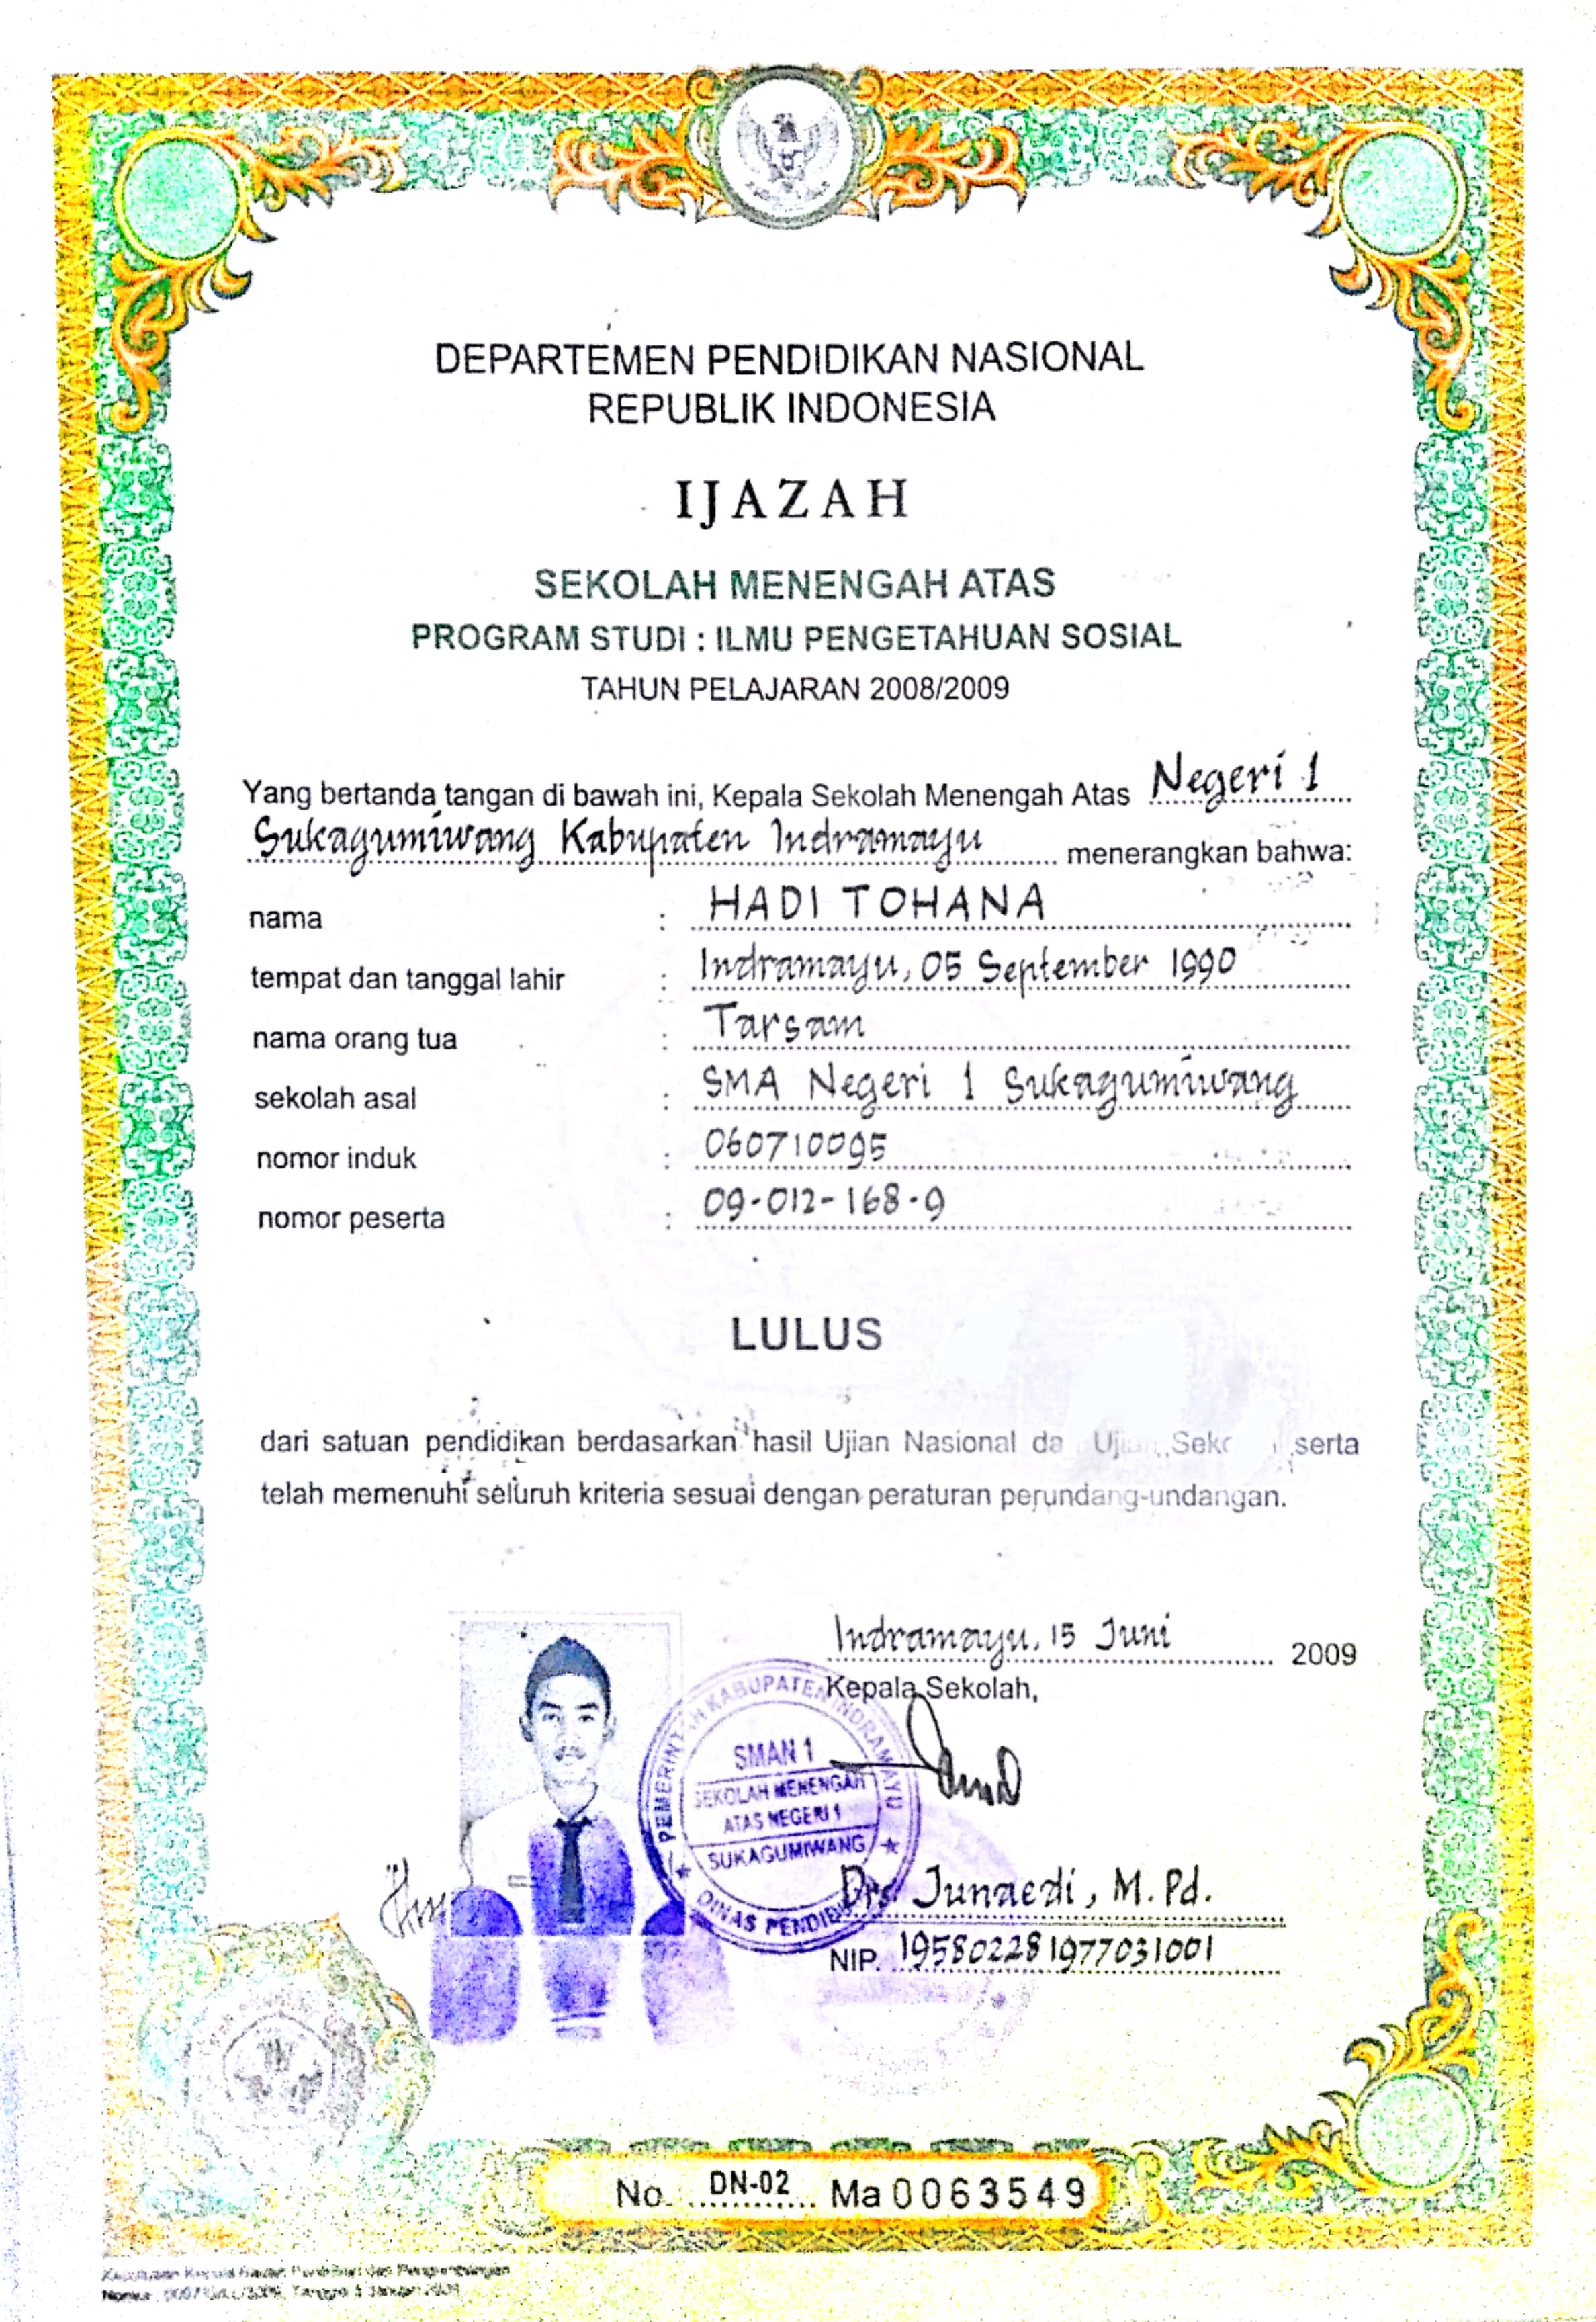 DEPARTEMEN PENDIDIKAN NASIONAL
REPUBLIK INDONESIA
IJAZAH
SEKOLAH MENENGAH ATAS
PROGRAM STUDI : ILMU PENGETAHUAN SOSIAL
TAHUN PELAJARAN 2008/2009
Yang bertanda tangan di bawah ini, Kepala Sekolah Menengah Atas Negeri 1
Sukagumiwang Kabupaten Indramayu menerangkan bahwa:
nama : HADI TOHANA
tempat dan tanggal lahir : Indramayu, 05 September 1990
nama orang tua : Tarsam
sekolah asal : SMA Negeri 1 Sukagumiwang
nomor induk : 060710095
nomor peserta : 09-012-168-9
LULUS
dari satuan pendidikan berdasarkan hasil Ujian Nasional serta
telah memenuhi seluruh kriteria sesuai dengan peraturan perundang-undangan.
Indramayu, 15 Juni 2009
Kepala Sekolah,
PEMERINTAH KABUPATEN INDRAMAYU
SMAN 1
SEKOLAH MENENGAH
ATAS NEGERI 1
SUKAGUMIWANG
DINAS
Drs. Junaedi, M.Pd.
NIP. 195802281977031001
No. DN-02 Ma 0063549